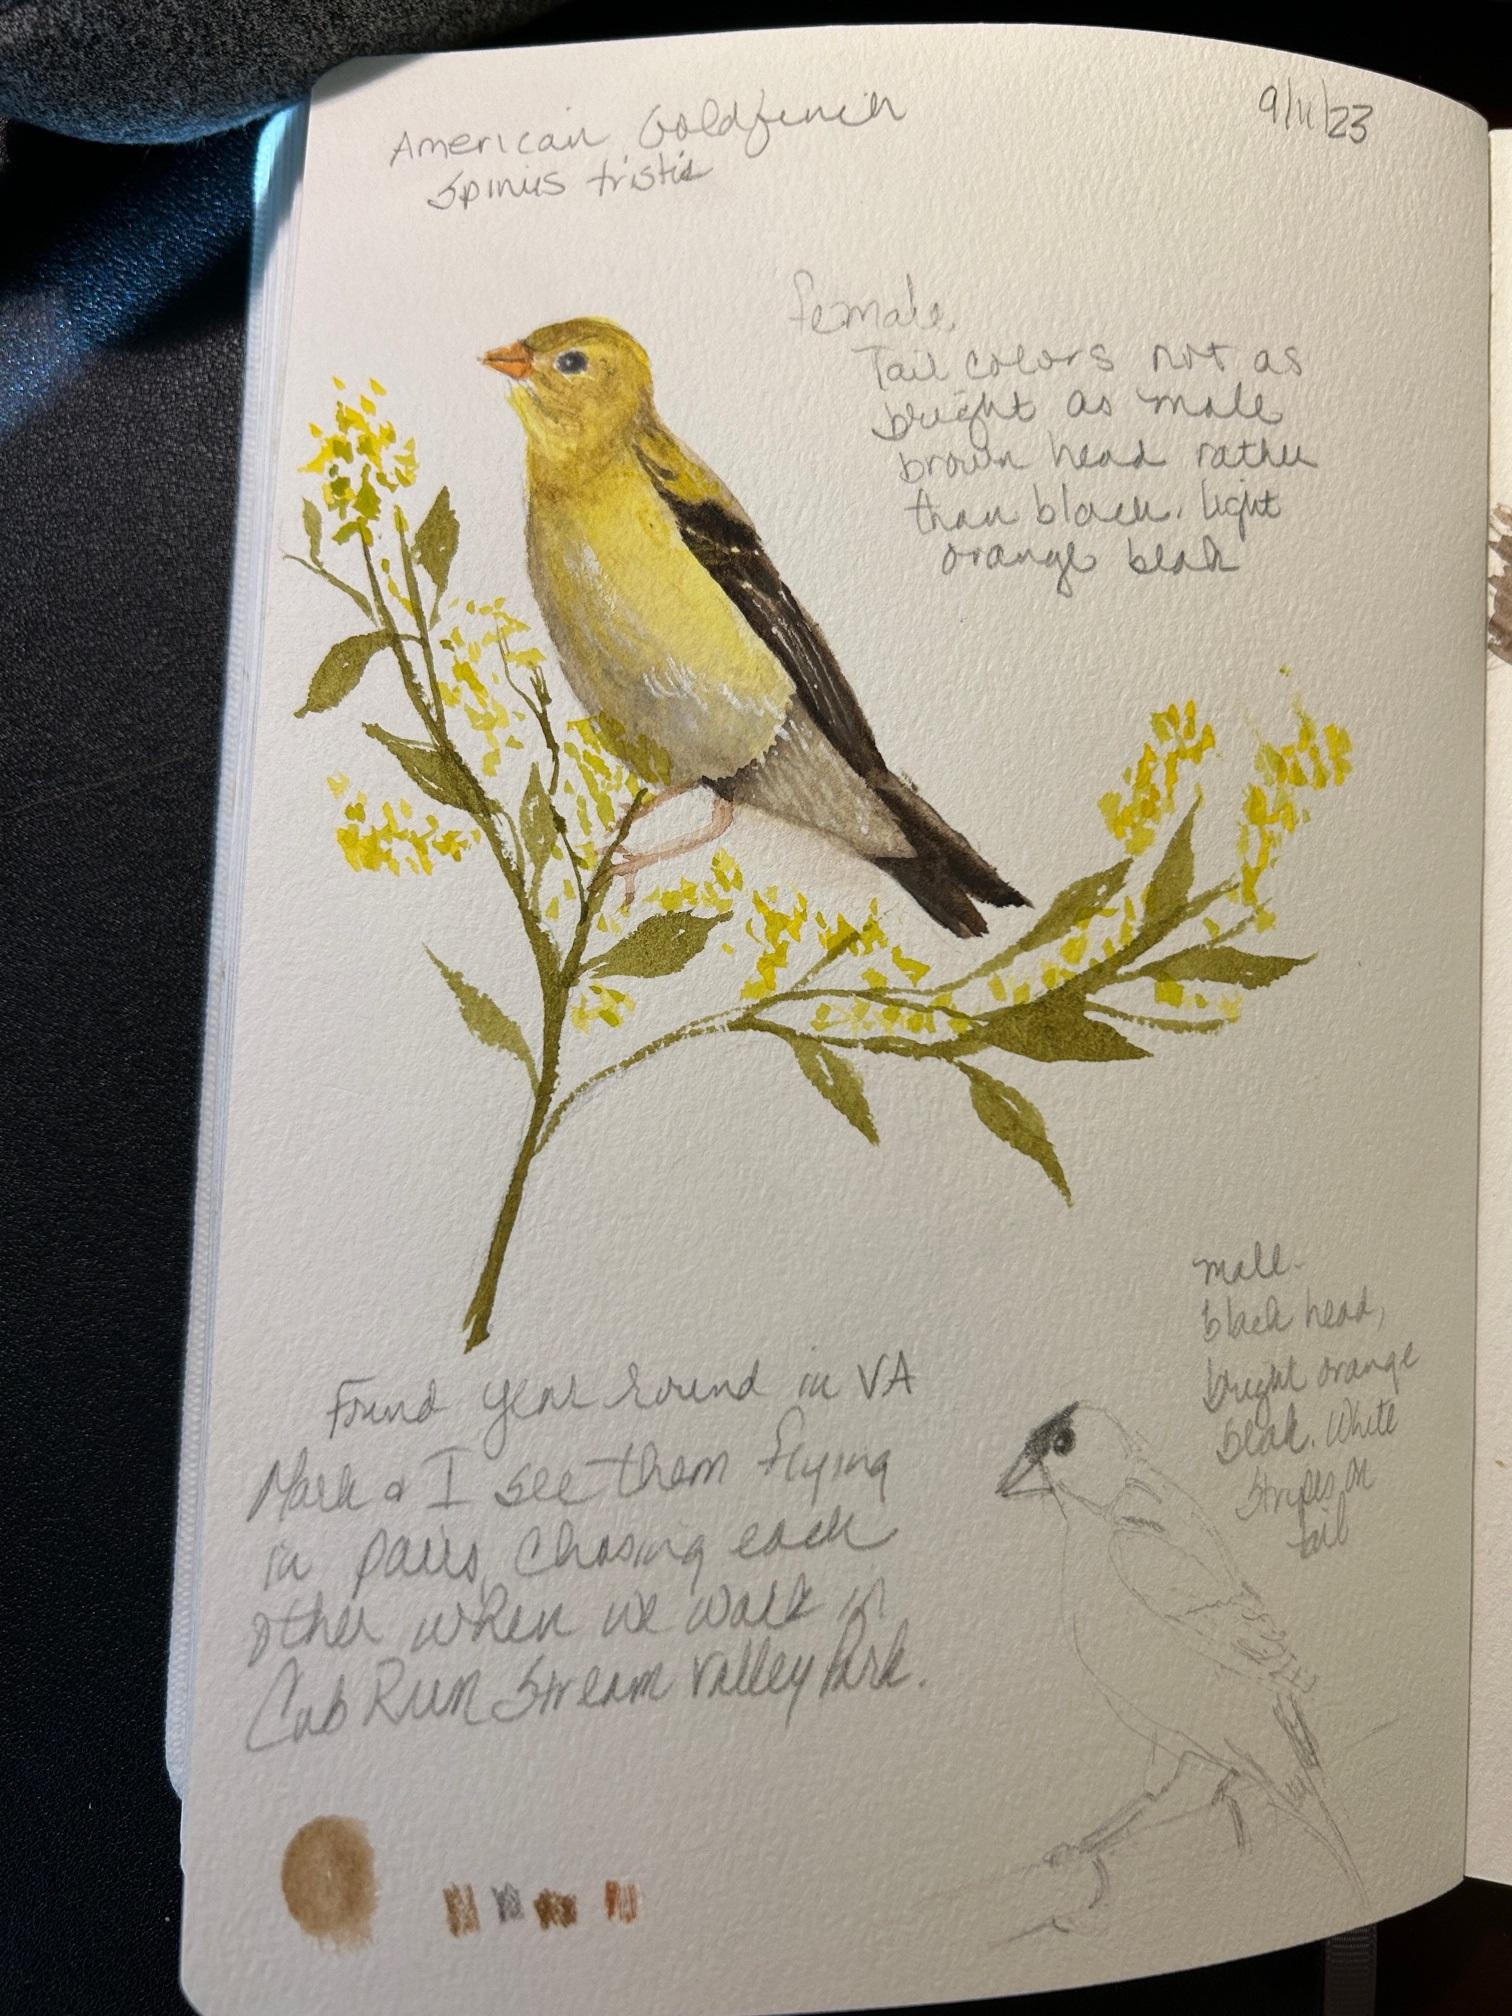 American Goldfinch
Spinus tristis
9/11/23
female.
Tail colors not as
bright as male
brown head rather
than black. light
orange beak
male.
black head,
bright orange
beak. White
stripes on
tail
Found year round in VA
Mark & I see them flying
in pairs, chasing each
other when we walk in
Cub Run Stream Valley Park.